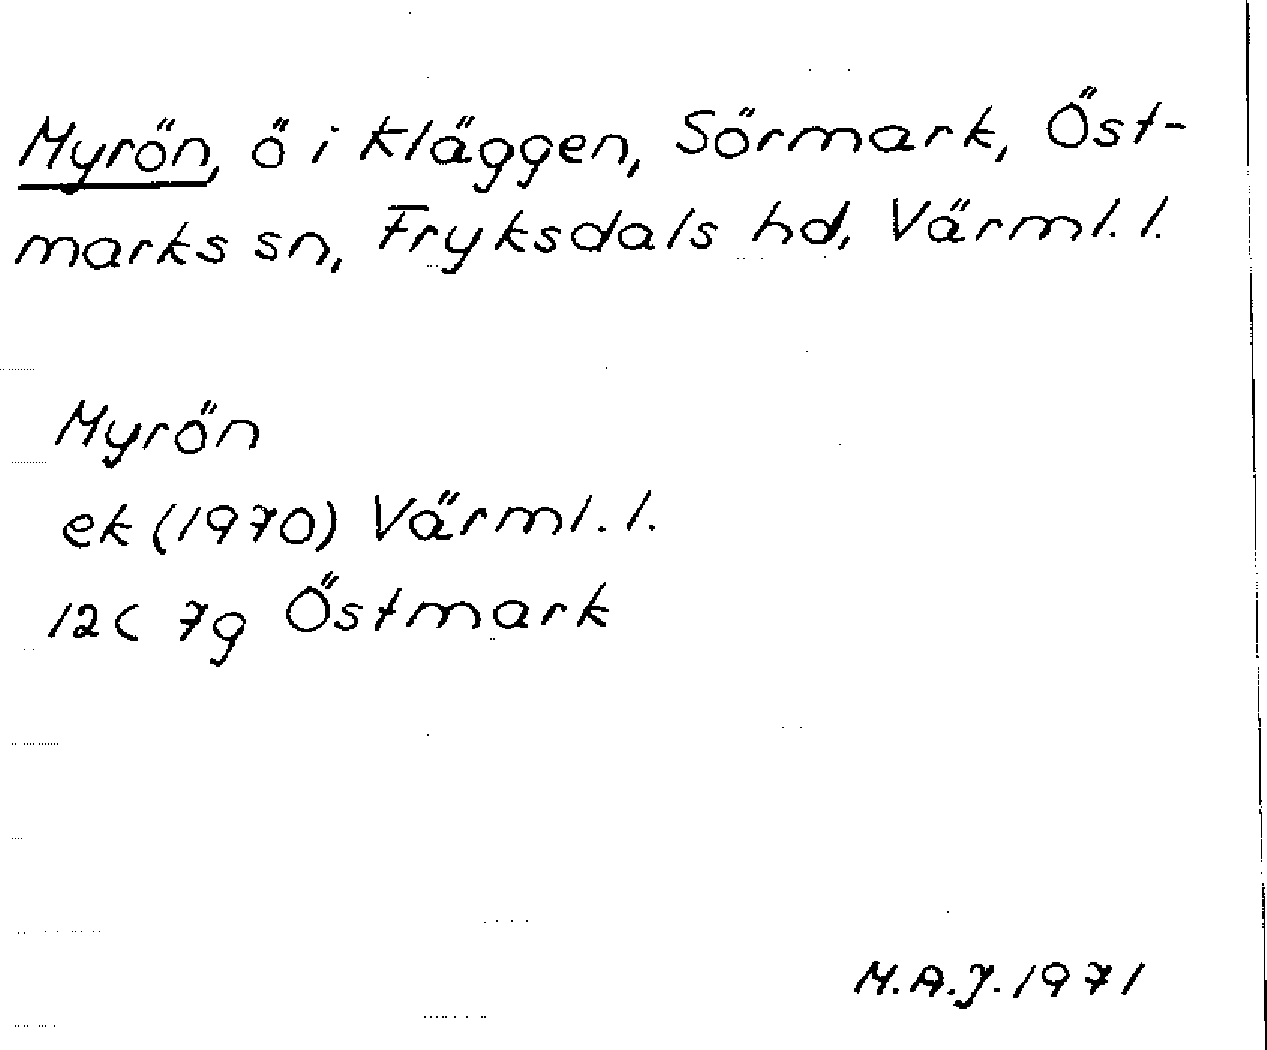 Myrön, ö i Kläggen, Sörmark, Öst-
marks sn, Fryksdals hd, Värml. l.
Myrön
ek (1970) Värml. l.
12C 7g Östmark
M.A.J. 1971